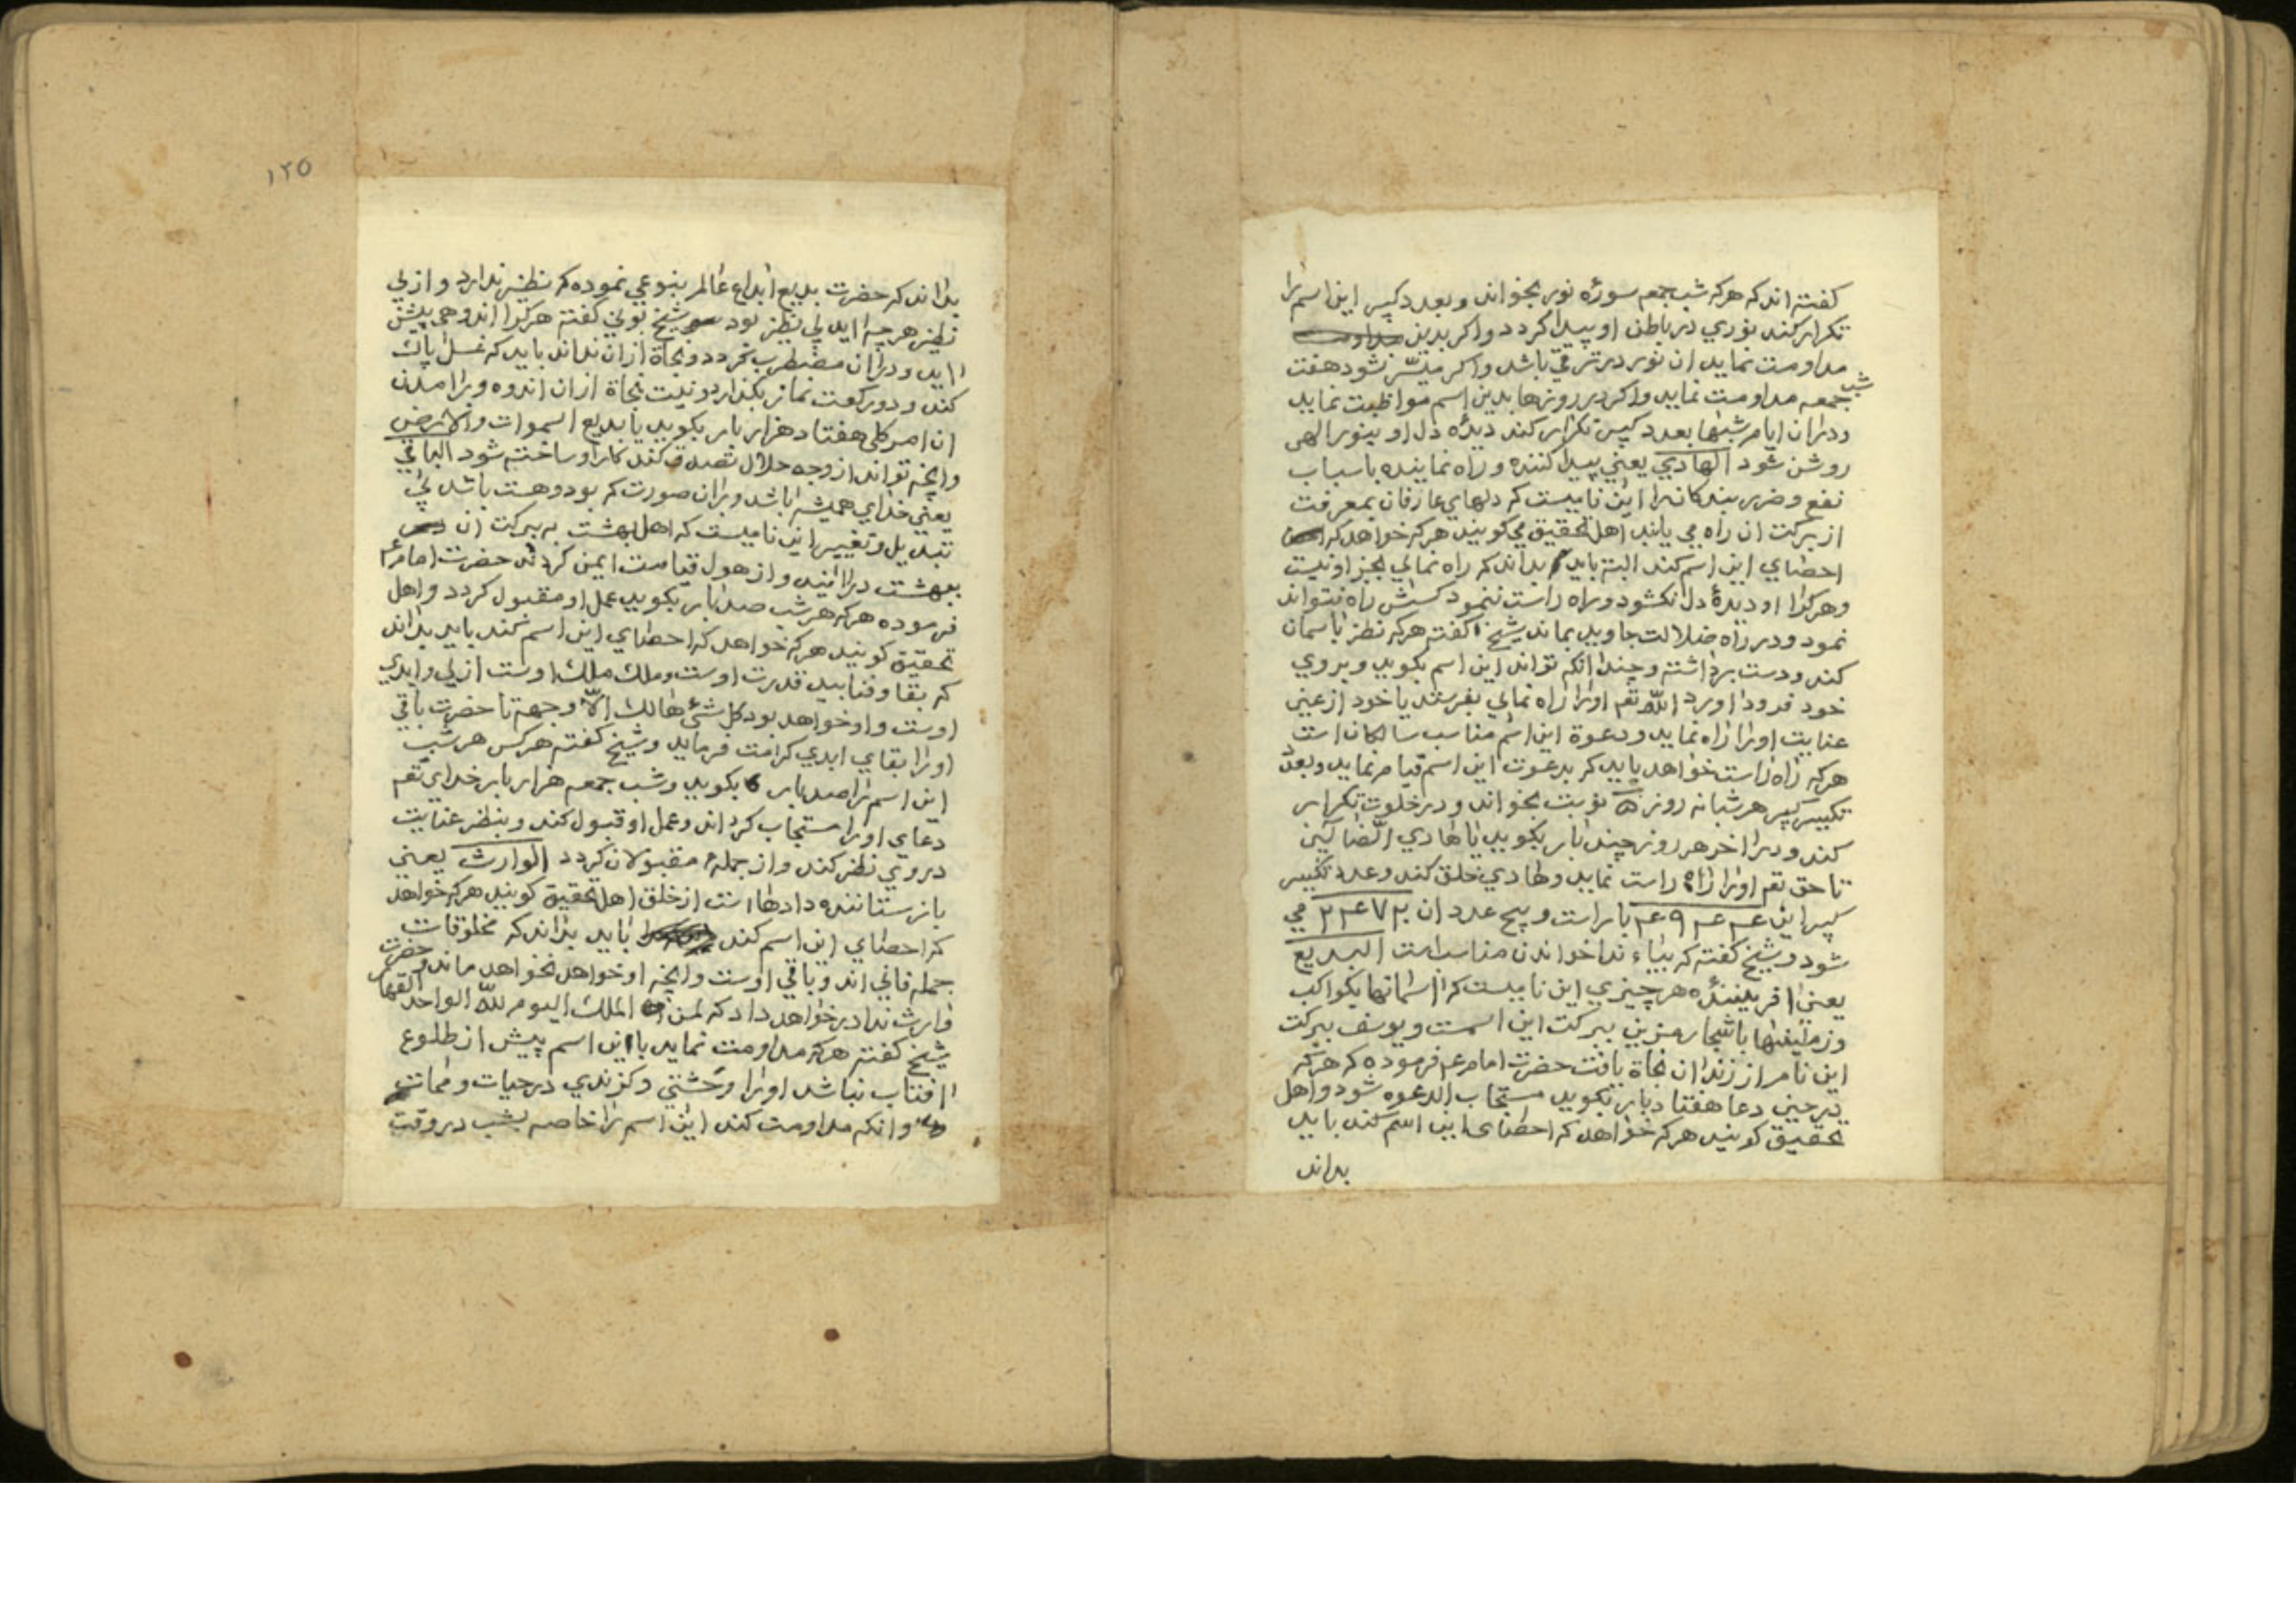 كفته اند كه هر كه شب جمعه سورۀ نور بخواند و بعدد كبير اين اسم را
تكرار كند نوري در باطن او پيدا كردد و اكر بدين
مداومت نمايد ان نور در ترقي باشد و اكر ميسر شود هفت
شب جمعه مداومت نمايد و اكر در روزها بدين اسم مواظبت نمايد
و در ان ايام شبها بعدد كبير تكرار كند ديدۀ دل او بنور الهي
روشن شود الهادي يعني پيدا كننده و راه نماينده باسباب
نفع و ضرر بندكانرا اين ناميست كه دلهاي عارفان بمعرفت
از بركت ان راه مي يابند اهل تحقيق مي كويند هر كه خواهد كه
احصاي اين اسم كند البته بايد بداند كه راه نمائي بجز او نيست
و هر كرا او ديدۀ دل نكشود و راه راست ننمود كسش راه نتواند
نمود و در راه ضلالت جاويد بماند شيخ كفته هر كه نظر باسمان
كند و دست برداشته و چندانكه تواند اين اسم بكويد و بروي
خود فرود اورد الله تعم اورا راه نمائي بفرستد يا خود از عين
عنايت اورا راه نمايد و دعوة اين اسم مناسب سالكان است
هر كه راه راست خواهد بايد كه بدعوت اين اسم قيام نمايد و بعدد
تكسير كبير هر شبانه روز ۵ نوبت بخواند و در خلوت تكرار
كند و در اخر هر روز چند بار بكويد يا هادي الضالين
تا حق تعم اورا راه راست نمايد و هادي خلق كند و عدد تكسير
كبير اين ۴۹۴۴ بار است و پنج عدد ان ۲۴۷۲۰ مي
شود و شيخ كفته كه بياء ندا خواندن مناسب است البديع
يعني افرينندۀ هر چيزي اين ناميست كه اسمانها بكواكب
و زمينها باشجار مزين ببركت اين اسمست و يوسف ببركت
اين نام از زندان نجاة يافت حضرت امام عم فرموده كه هر كه
در حين دعا هفتاد بار بكويد مستجاب الدعوه شود و اهل
تحقيق كويند هر كه خواهد كه احصاي اين اسم كند بايد
بداند
۱۲۵
بداند كه حضرت بديع ابداع عالم بنوعي نموده كه نظير ندارد و از بي
نظير هر چه ايد بي نظير بود شيخ بوني كفته هر كرا اندوهي پيش
ايد و در ان مضطرب كردد و نجاة از ان نداند بايد كه غسل پاك
كند و دو ركعت نماز بكذارد و نيت نجاة از ان اندوه و برامدن
ان امر كلي هفتاد هزار بار بكويد يا بديع السموات والارض
و انچه تواند از وجه حلال تصدق كند كار او ساخته شود الباقي
يعني خداي هميشه باشد و بران صورت كه بود و هست باشد بي
تبديل و تغيير اين ناميست كه اهل بهشت به بركت ان
ببهشت درايند و از هول قيامت ايمن كردند حضرت امام عم
فرموده هر كه هر شب صد بار بكويد عمل او مقبول كردد و اهل
تحقيق كويند هر كه خواهد كه احصاي اين اسم كند بايد بداند
كه بقا و فنا بيد قدرت اوست و ملك ملك اوست ازلي و ابدي
اوست و او خواهد بود كل شئ هالك الا وجهه تا حضرت باقي
اورا بقاي ابدي كرامت فرمايد و شيخ كفته هر كس هر شب
اين اسم را صد بار بكويد و شب جمعه هزار بار خداي تعم
دعاي اورا مستجاب كرداند و عمل او قبول كند و بنظر عنايت
در وي نظر كند و از جملۀ مقبولان كردد الوارث يعني
باز ستاننده دادها است از خلق اهل تحقيق كويند هر كه خواهد
كه احصاي اين اسم كند بايد بداند كه مخلوقات
جمله فاني اند و باقي اوست و انچه او خواهد نخواهد ماند و حضرت
وارث ندا در خواهد داد كه لمن الملك اليوم لله الواحد القهار
شيخ كفته هر كه مداومت نمايد با اين اسم پيش از طلوع
افتاب نباشد اورا وحشتي و كزندي در حيات و ممات
و انكه مداومت كند اين اسم را خاصه بشب در وقت